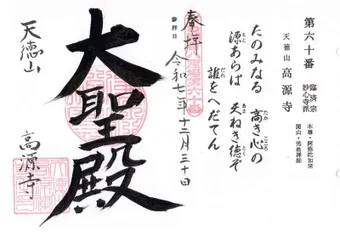 第六十番
臨済宗
妙心寺派
天徳山 高源寺
本尊・阿弥陀如来
開山・
たのみなる 高き心の
源あらば 天ねき徳ぞ
誰をへだてん
奉拝
参拝日
令和七年十二月三十日
大聖殿
天徳山
高源寺